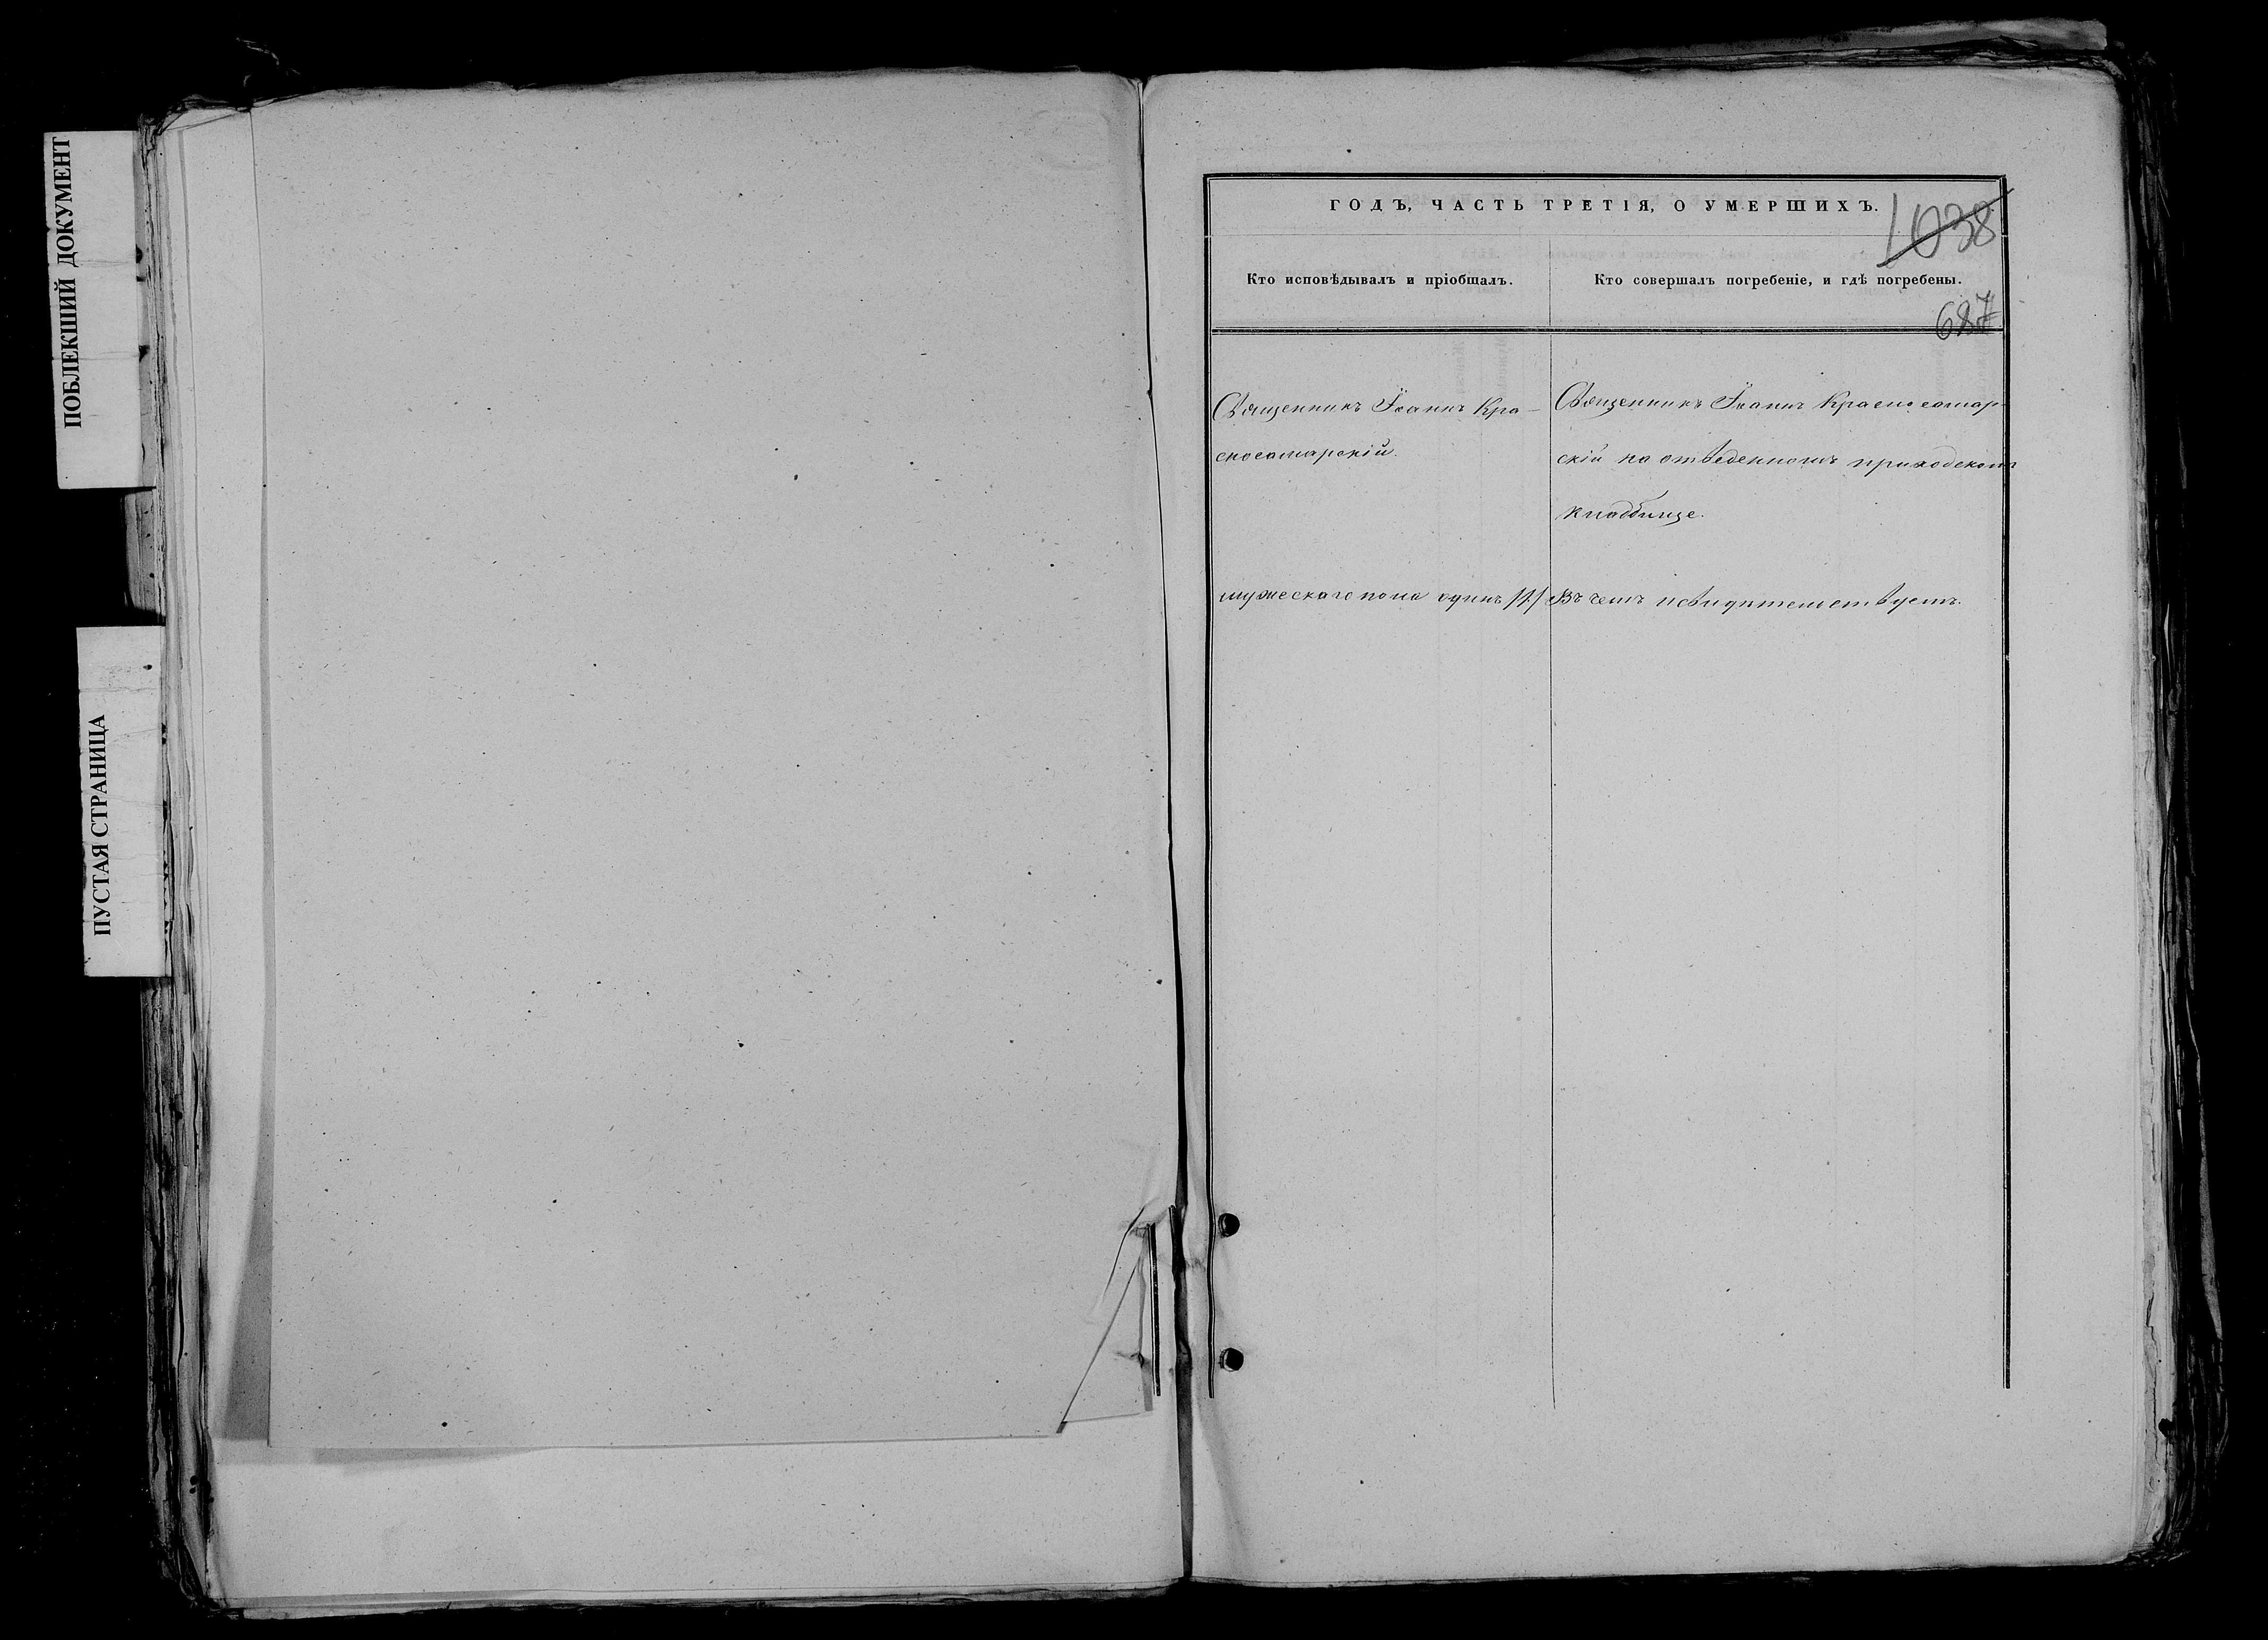 ПОБЛЕКШИЙ ДОКУМЕНТ
ПУСТАЯ СТРАНИЦА
ГОДЪ, ЧАСТЬ ТРЕТІЯ, О УМЕРШИХЪ.
1038
Кто исповѣдывалъ и пріобщалъ.
Кто совершалъ погребеніе, и гдѣ погребены.
687
Священникъ Іоаннъ Кра-
сносамарскій.
Священникъ Іоаннъ Красносамар
скій на отведенномъ приходскомъ
кладбище.
мужескаго пола одинъ /1/
Въ чемъ и свидѣтельствуемъ.